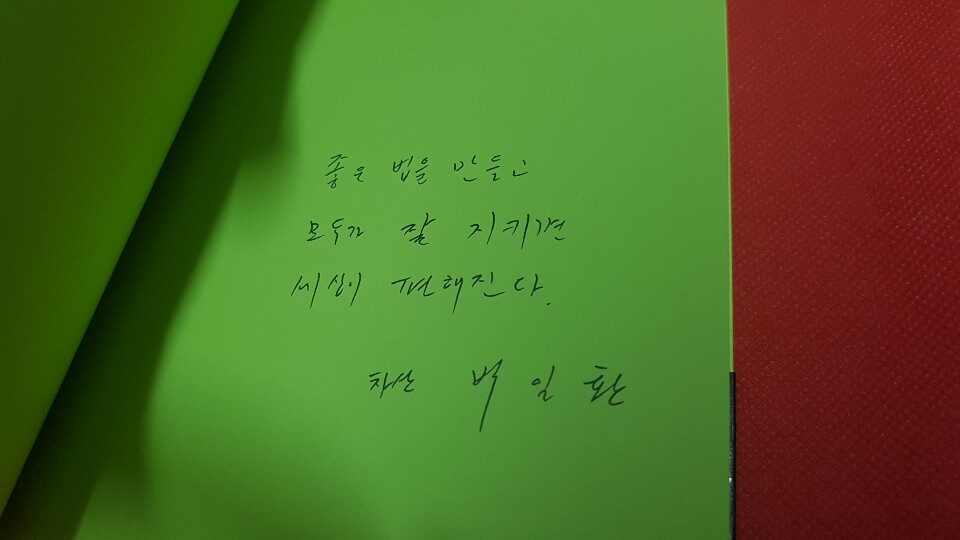 좋은 법을 만들고
모두가 잘 지키면
세상이 편해진다.
차산 백일환